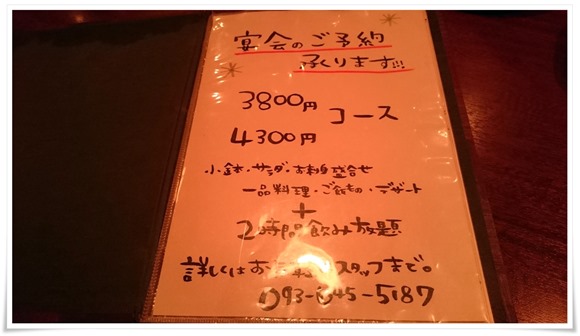 宴会のご予約
承ります!!!
3800円
コース
4300円
小鉢・サラダ・お刺身盛合せ
一品料理・ご飯もの・デザート
+
2時間飲み放題
詳しくはお スタッフまで。
093-645-5187